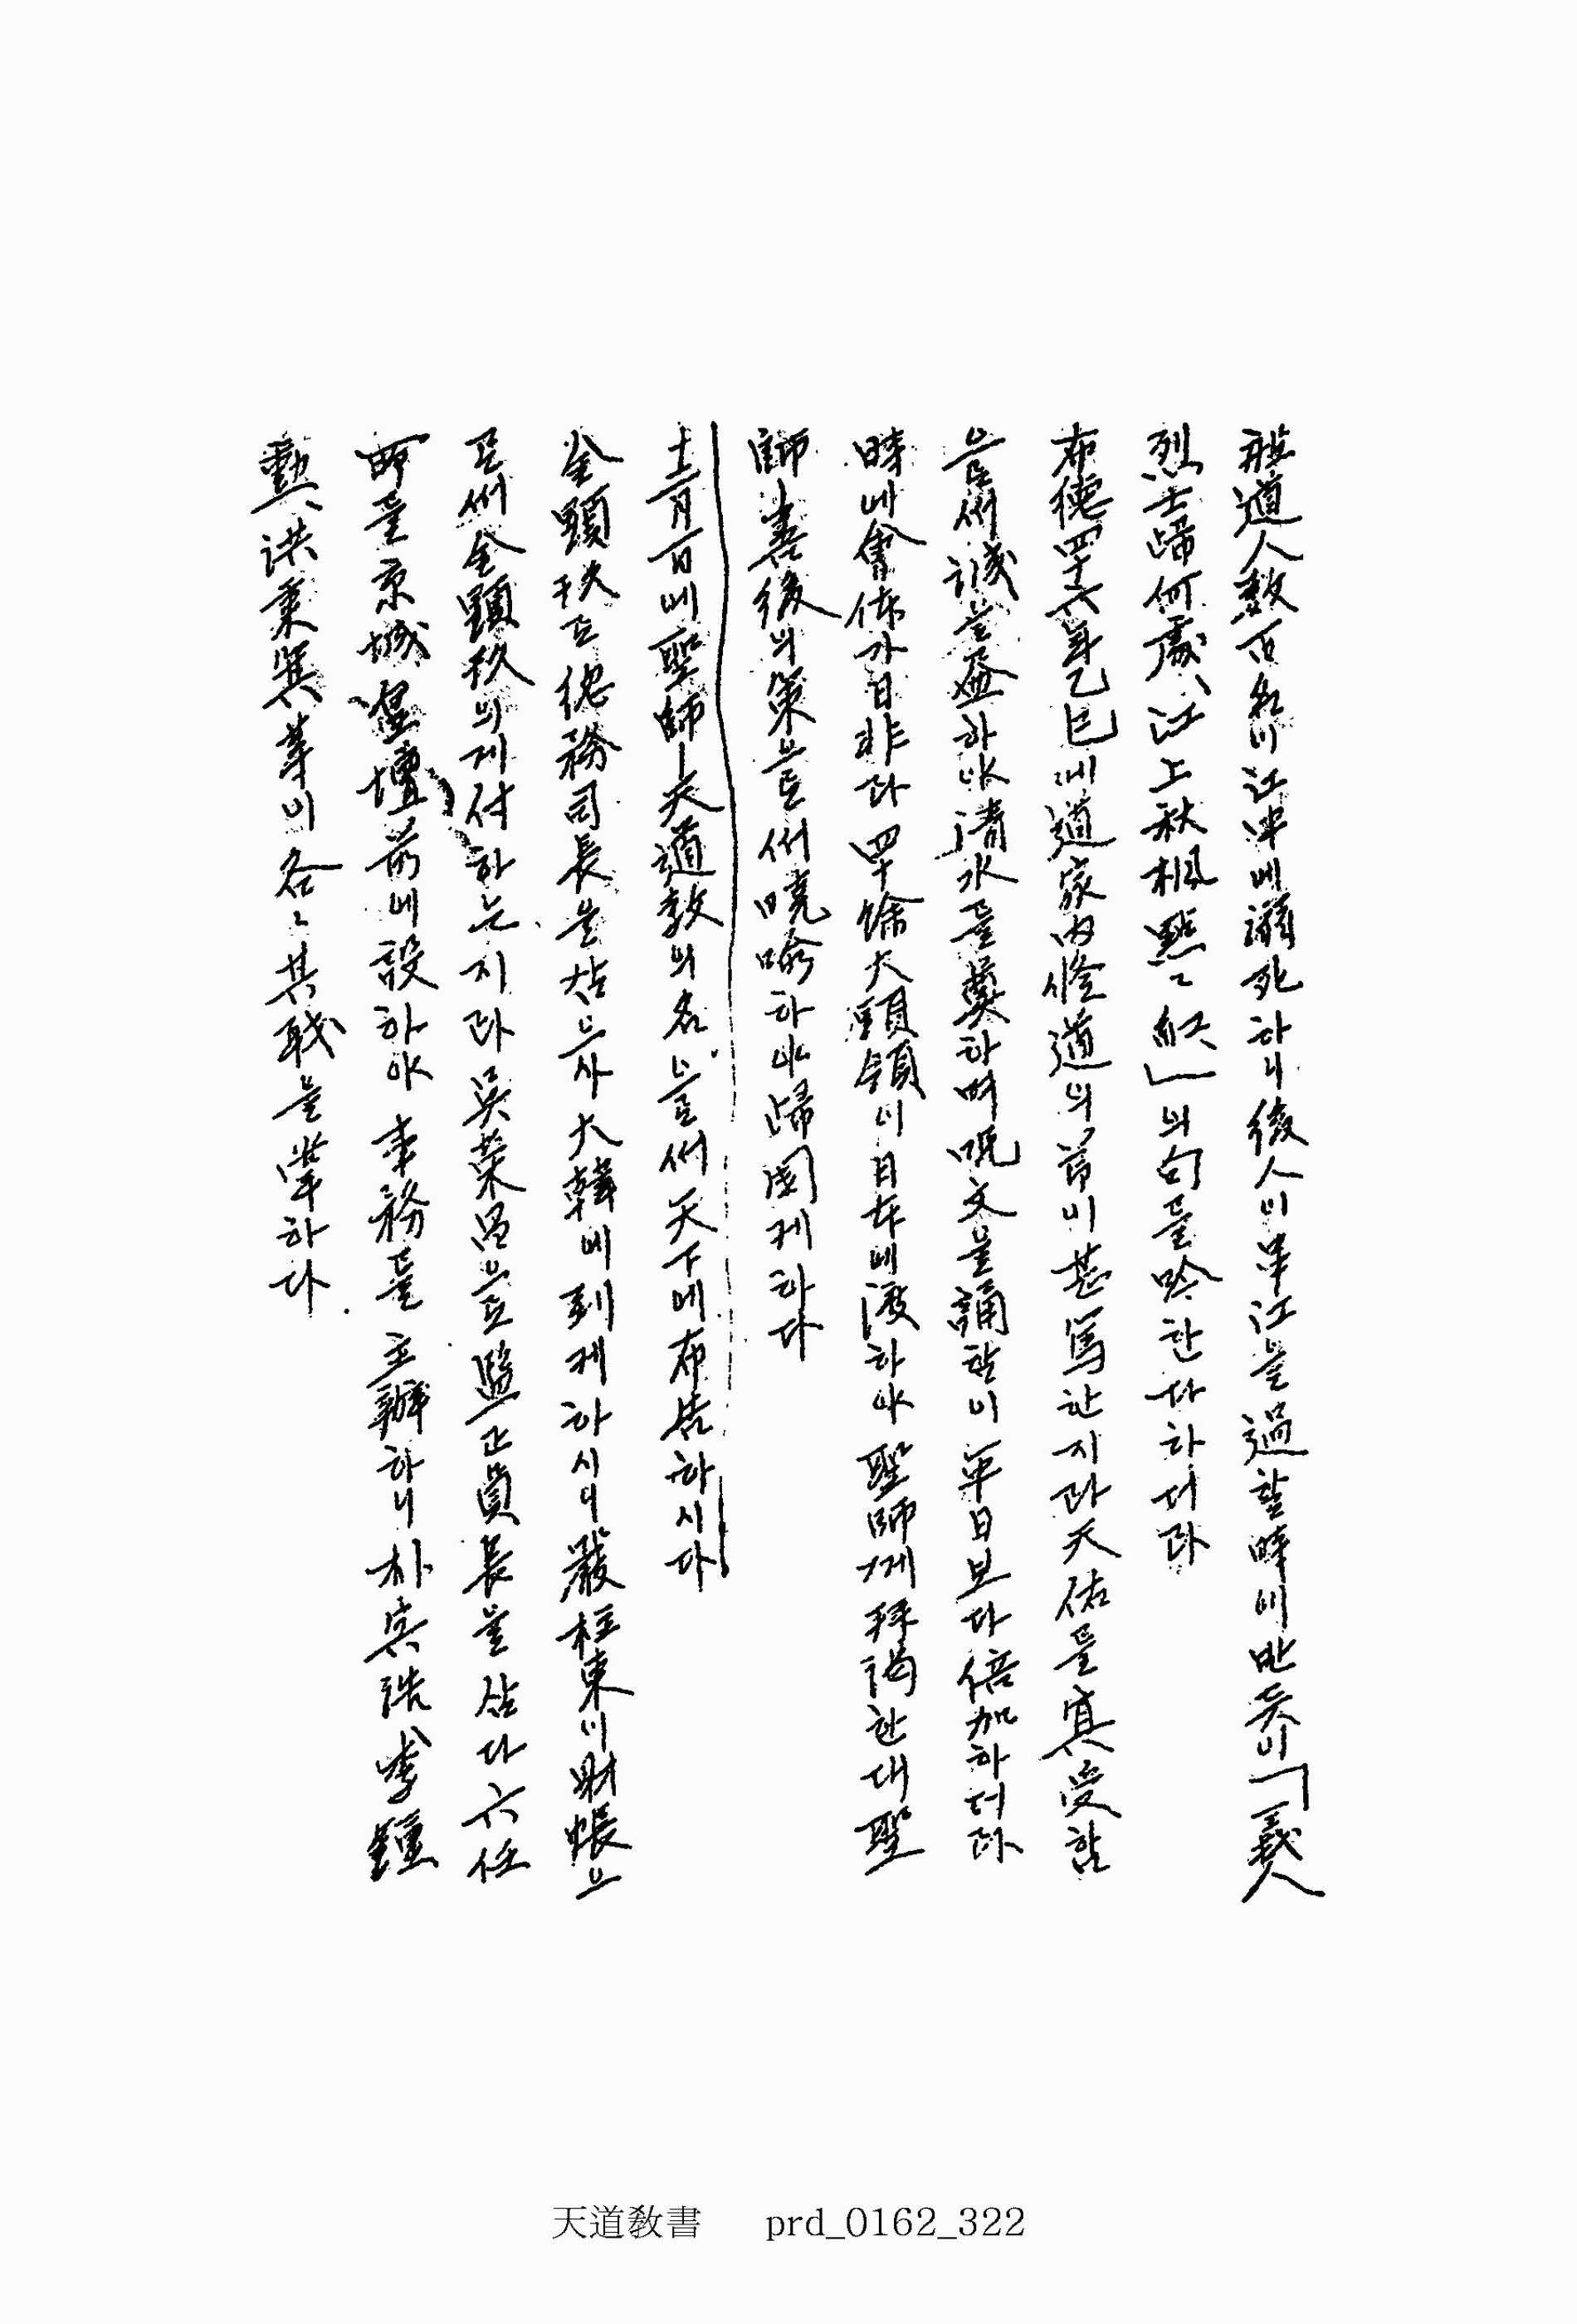 道人數百名이 江中에 溺死하니 後人이 其江을 過할 時에 반듯이 「義人
烈士歸何處、江上秋楓點々紅」의 句를 吟한다 하더라
布德四十六年乙巳에 道家內 修道의 節이 甚篤한지라 天佑를 冥受함
으로써 誠을 益하야 淸水를 奠하며 呪文을 誦함이 平日보다 倍加하더라
時에 會体가 日非라 四十餘 大頭領이 日本에 渡하야 聖師께 拜謁한대 聖
師ㅣ 善後의 策으로써 曉喩하야 歸國케 하다
十二月一日에 聖師ㅣ 天道敎의 名으로써 天下에 布告하시다
金顯玖로 總務司長을 삼으사 大韓에 到케 하시니 嚴柱東이 財帳으
로써 金顯玖의게 付하는지라 吳榮昌으로 監正員長을 삼다 六任
所를 京城 壇前에 設하야 事務를 主辦하니 朴寅浩、李鍾
勳、洪秉箕 等이 各々 其職을 掌하다
天道敎書 prd_0162_322